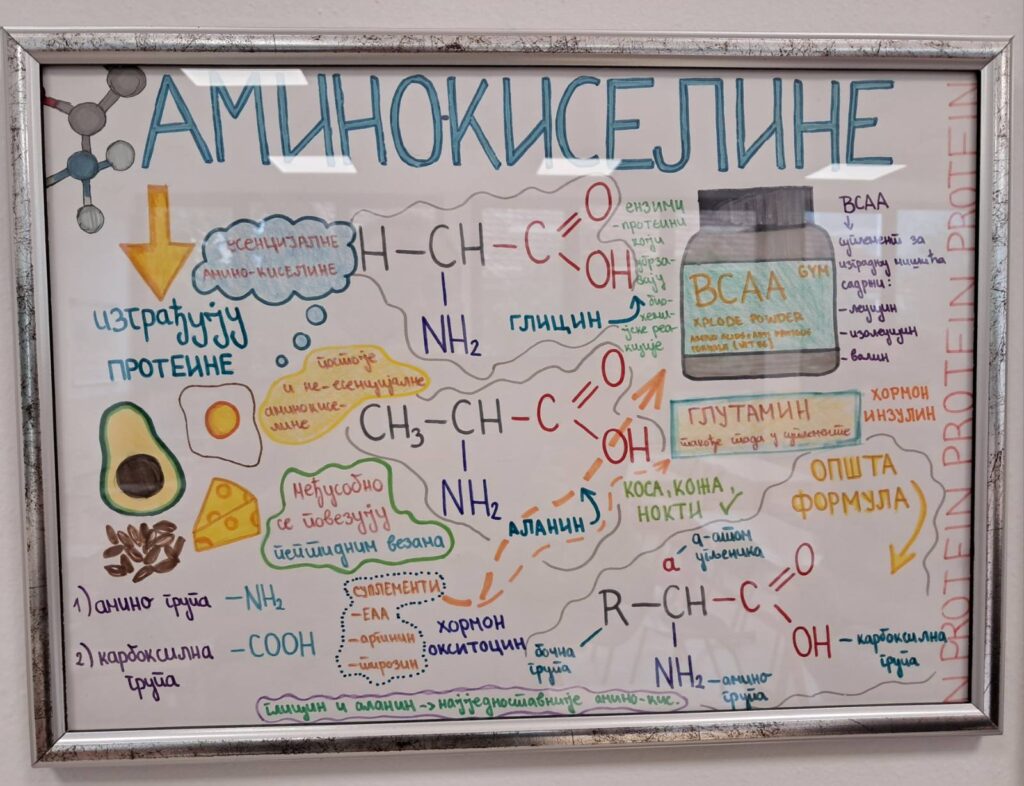 АМИНО-КИСЕЛИНЕ
ЕСЕНЦИЈАЛНЕ
АМИНО-КИСЕЛИНЕ
изграђују
ПРОТЕИНЕ
H–CH–C
O
OH
NH₂
ГЛИЦИН
ензими
- протеини
који
убрза-
вају
био-
хемиј-
ске реа-
кције
BCAA
GYM
XPLODE POWDER
BCAA
суплемент за
изградњу мишића
садржи:
- леуцин
- изолеуцин
- валин
постоје
и не-есенцијалне
аминокисе-
лине
CH₃–CH–C
O
OH
NH₂
АЛАНИН
ГЛУТАМИН
такође спада у суплементе
ХОРМОН
ИНЗУЛИН
КОСА, КОЖА,
НОКТИ
ОПШТА
ФОРМУЛА
Међусобно
се повезују
пептидним везама
1) амино група –NH₂
2) карбоксилна –COOH
група
СУПЛЕМЕНТИ
–EAA
–аргинин
–тирозин
ХОРМОН
ОКСИТОЦИН
α-атом
угљеника
α
R–CH–C
O
OH
–карбоксилна
група
бочна
група
NH₂
–амино
група
глицин и аланин → најједноставније амино-кис.
N PROTEIN PROTEIN PROTEIN PROTEIN